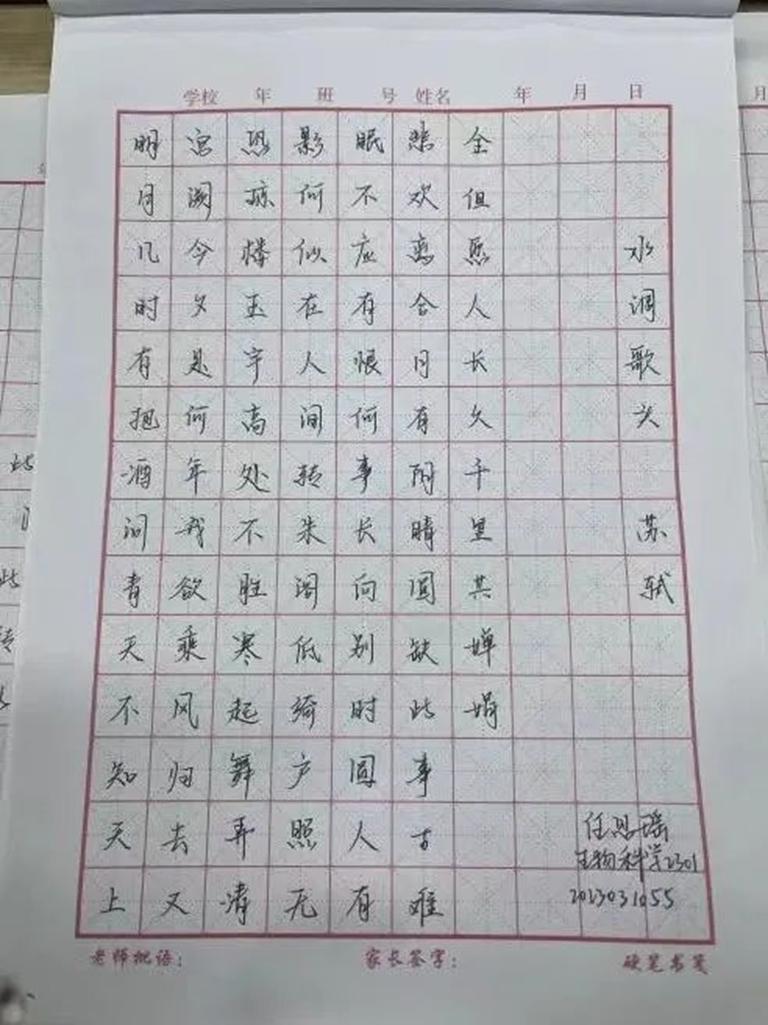 学校 年 班 号 姓名 年 月 日
水调歌头
苏轼
明月几时有把酒问青天不知天上
宫阙今夕是何年我欲乘风归去又
恐琼楼玉宇高处不胜寒起舞弄清
影何似在人间转朱阁低绮户照无
眠不应有恨何事长向别时圆人有
悲欢离合月有阴晴圆缺此事古难
全但愿人长久千里共婵娟
任思瑶
生物科学2301
2023031055
老师批语： 家长签字： 硬笔书笺
月